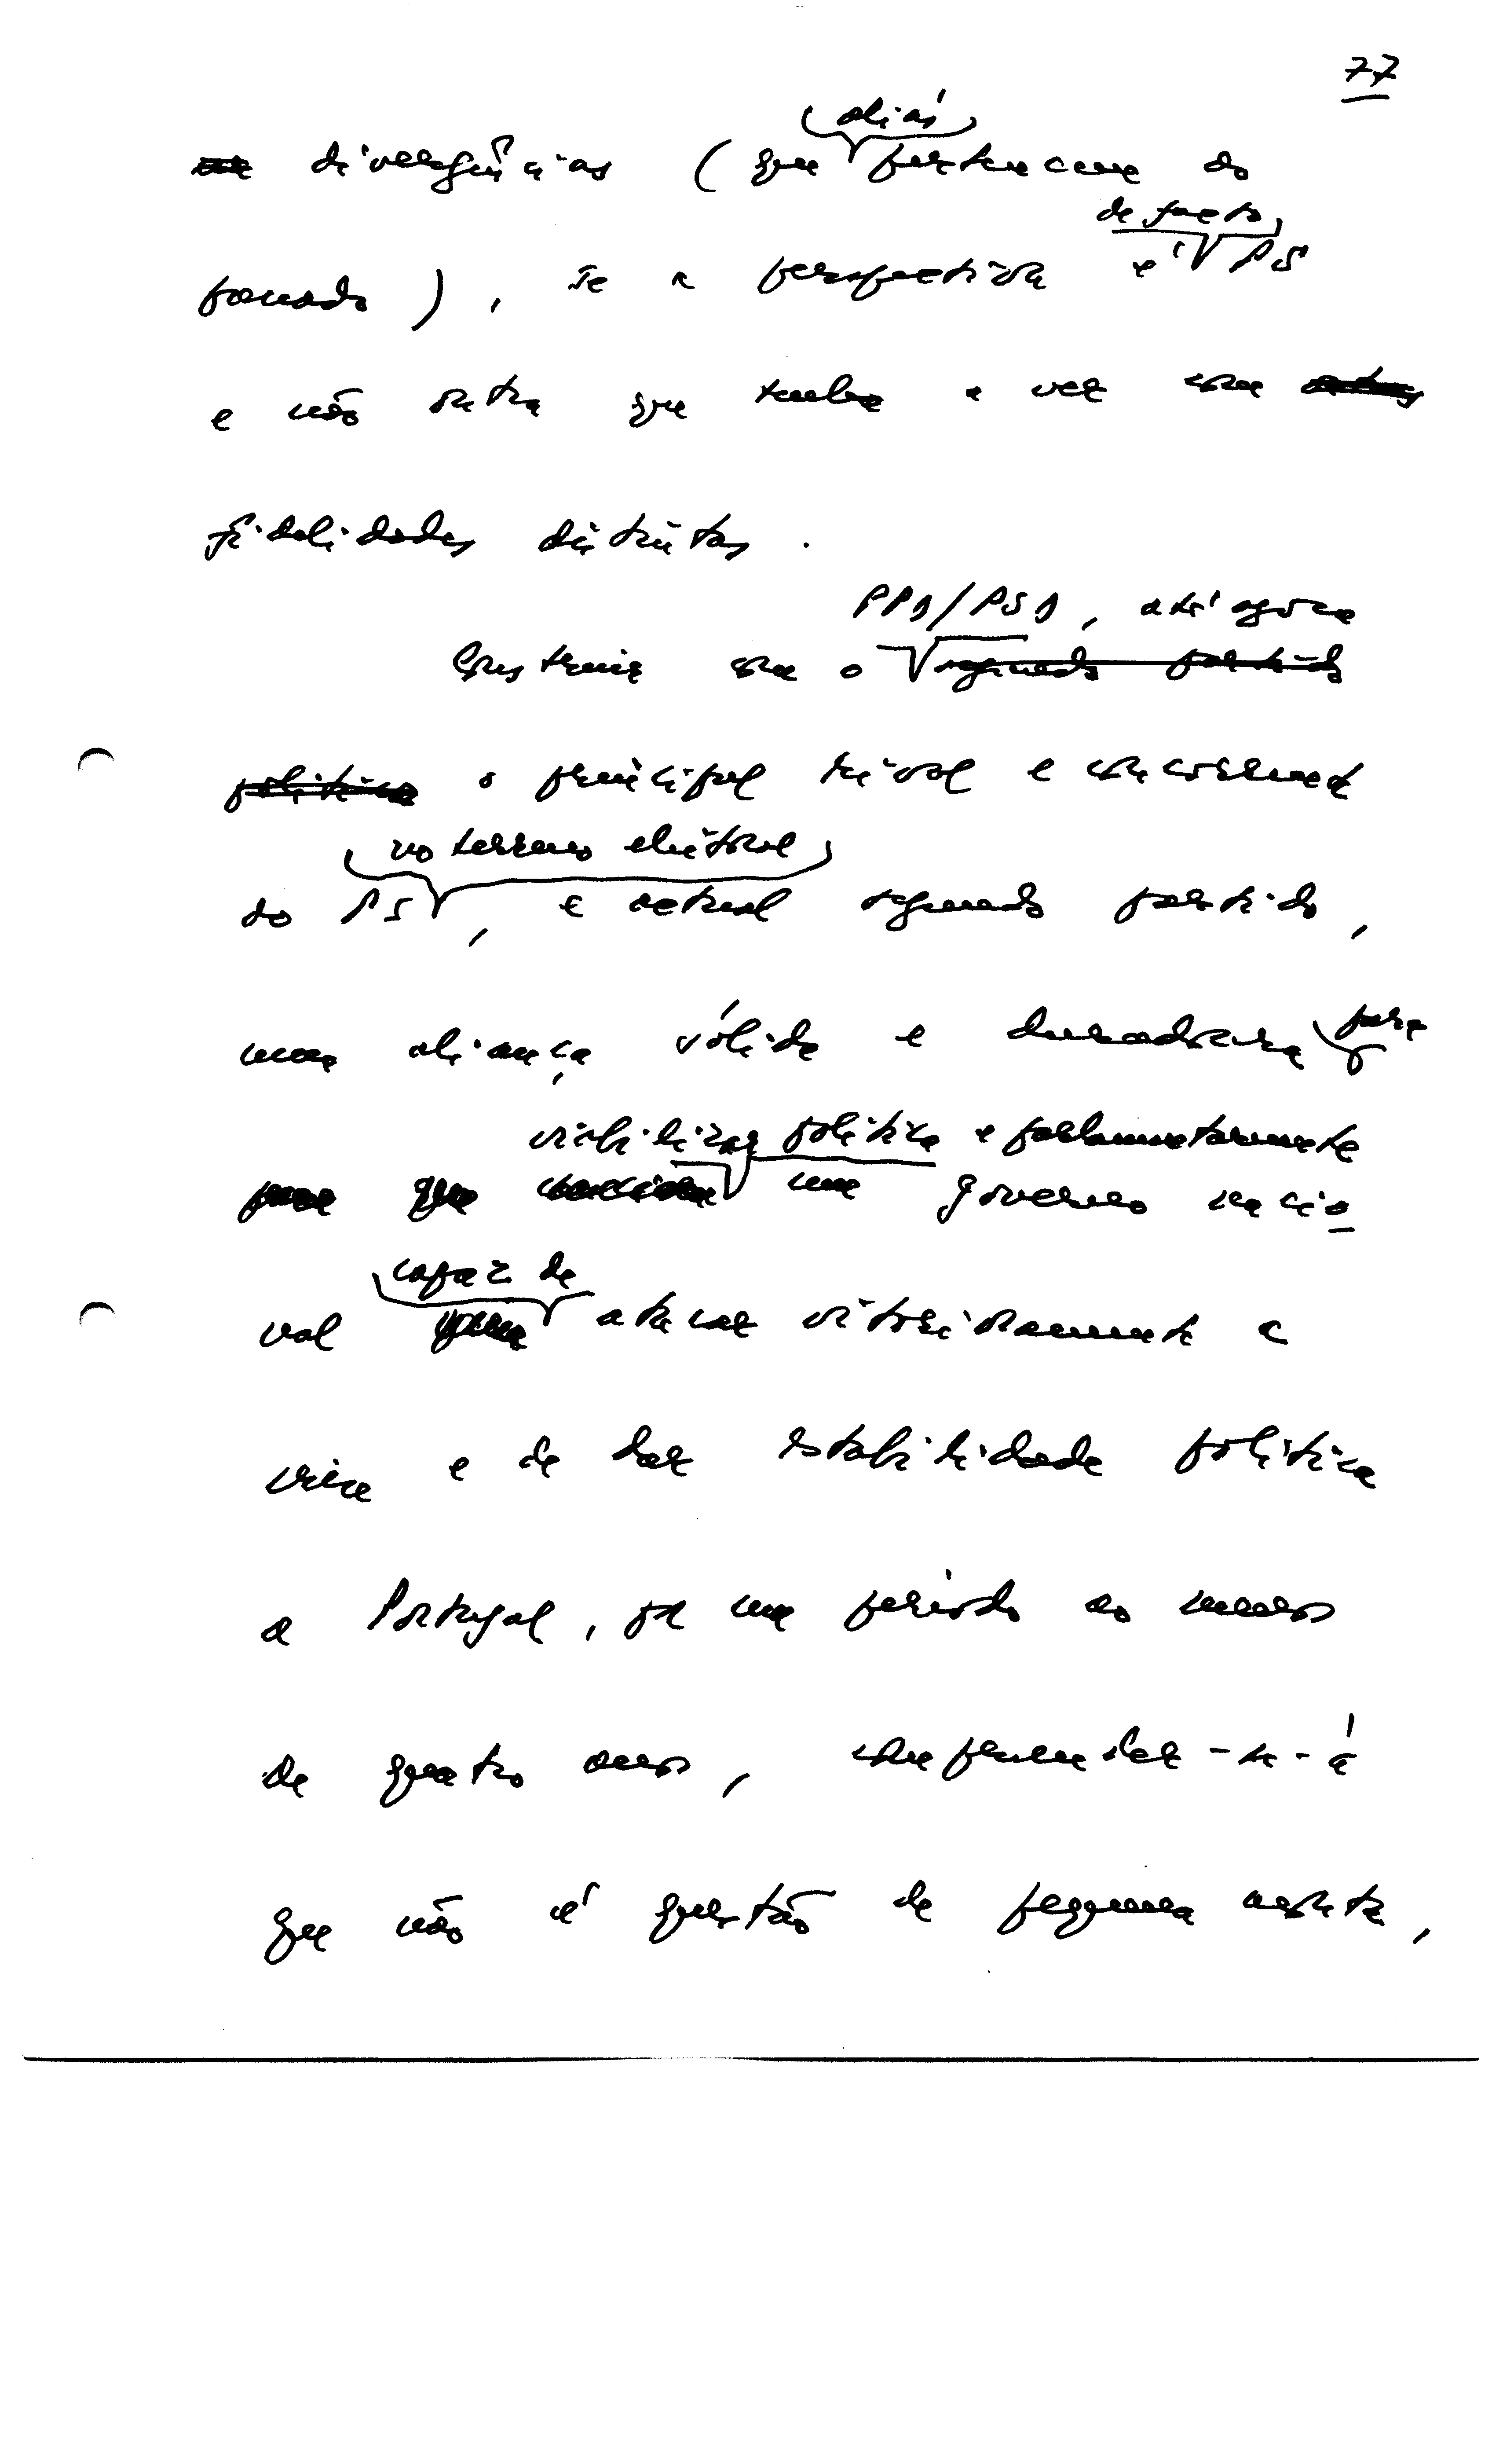 77
aliás
divergências (que pertencem ao
de facto,
passado), se a perspectiva é PS
e não outra que tenha a ver com
fidelidades distintas.
PPD/PSD, até agora
Construir com o segundo partido
política o principal rival e concorrente
no terreno eleitoral
do PS, e actual segundo partido,
uma aliança sólida e duradoura para
viabilizar política e parlamentarmente
para que um governo nacio
capaz de
nal para atacar vitoriosamente a
crise e de dar estabilidade política
a Portugal, por um período ao menos
de quatro anos, compreender-se-á
que não é questão de pequena monta,